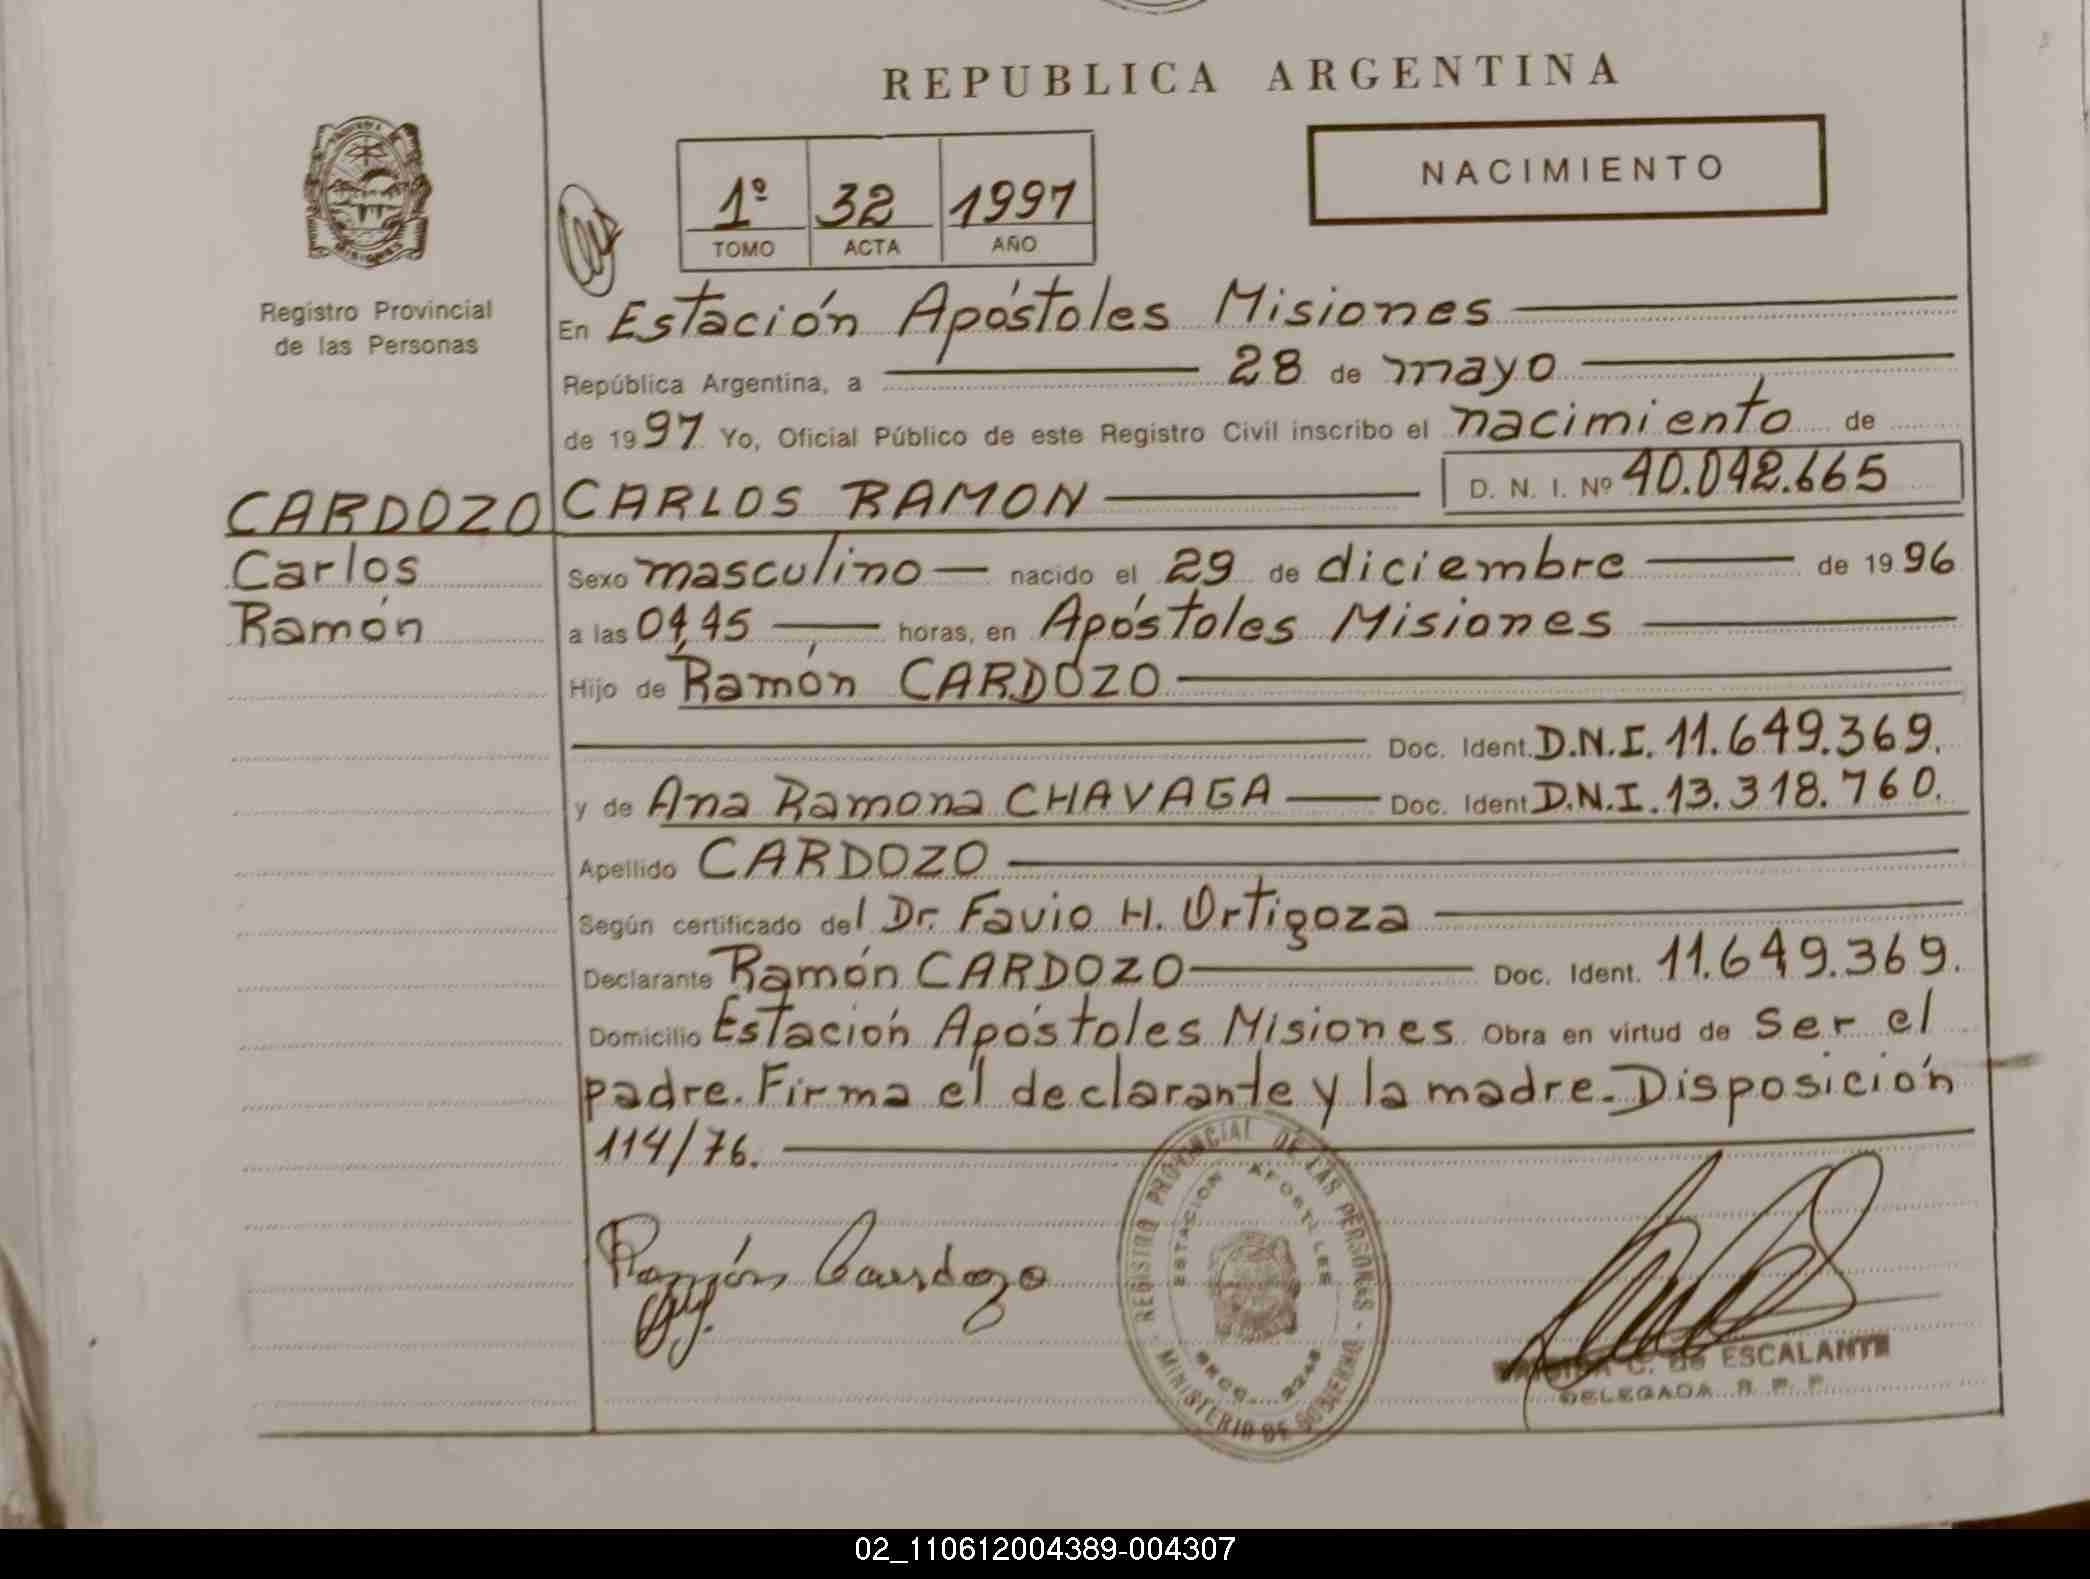 REPUBLICA ARGENTINA
NACIMIENTO
1º 32 1997
TOMO ACTA AÑO
Registro Provincial
de las Personas
En Estación Apóstoles Misiones
República Argentina, a 28 de mayo
de 1997 Yo, Oficial Público de este Registro Civil inscribo el nacimiento de
CARDOZO CARLOS RAMON D. N. I. Nº 40.042.665
Carlos
Ramón
Sexo masculino nacido el 29 de diciembre de 1996
a las 04,45 horas, en Apóstoles Misiones
Hijo de Ramón CARDOZO
Doc. Ident. D.N.I. 11.649.369.
y de Ana Ramona CHAVAGA Doc. Ident D.N.I. 13.318.760.
Apellido CARDOZO
Según certificado del Dr. Favio H. Ortigoza
Declarante Ramón CARDOZO Doc. Ident. 11.649.369.
Domicilio Estación Apóstoles Misiones Obra en virtud de Ser el
padre. Firma el declarante y la madre. Disposición
114/76.
Ramón Cardozo
REGISTRO PROVINCIAL DE LAS PERSONAS
MINISTERIO DE GOBIERNO
ESTACION APOSTOLES
C. de ESCALANTE
DELEGADA R. P. P.
02_110612004389-004307